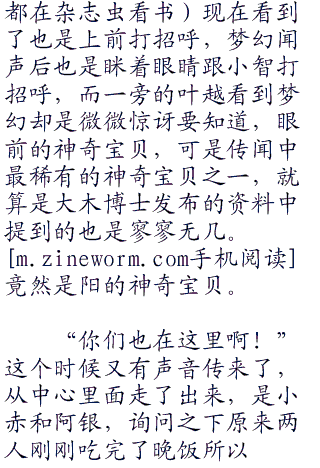 都在杂志虫看书）现在看到
了也是上前打招呼，梦幻闻
声后也是眯着眼睛跟小智打
招呼，而一旁的叶越看到梦
幻却是微微惊讶要知道，眼
前的神奇宝贝，可是传闻中
最稀有的神奇宝贝之一，就
算是大木博士发布的资料中
提到的也是寥寥无几。
[m.zineworm.com手机阅读]
竟然是阳的神奇宝贝。
“你们也在这里啊！”
这个时候又有声音传来了，
从中心里面走了出来，是小
赤和阿银，询问之下原来两
人刚刚吃完了晚饭所以